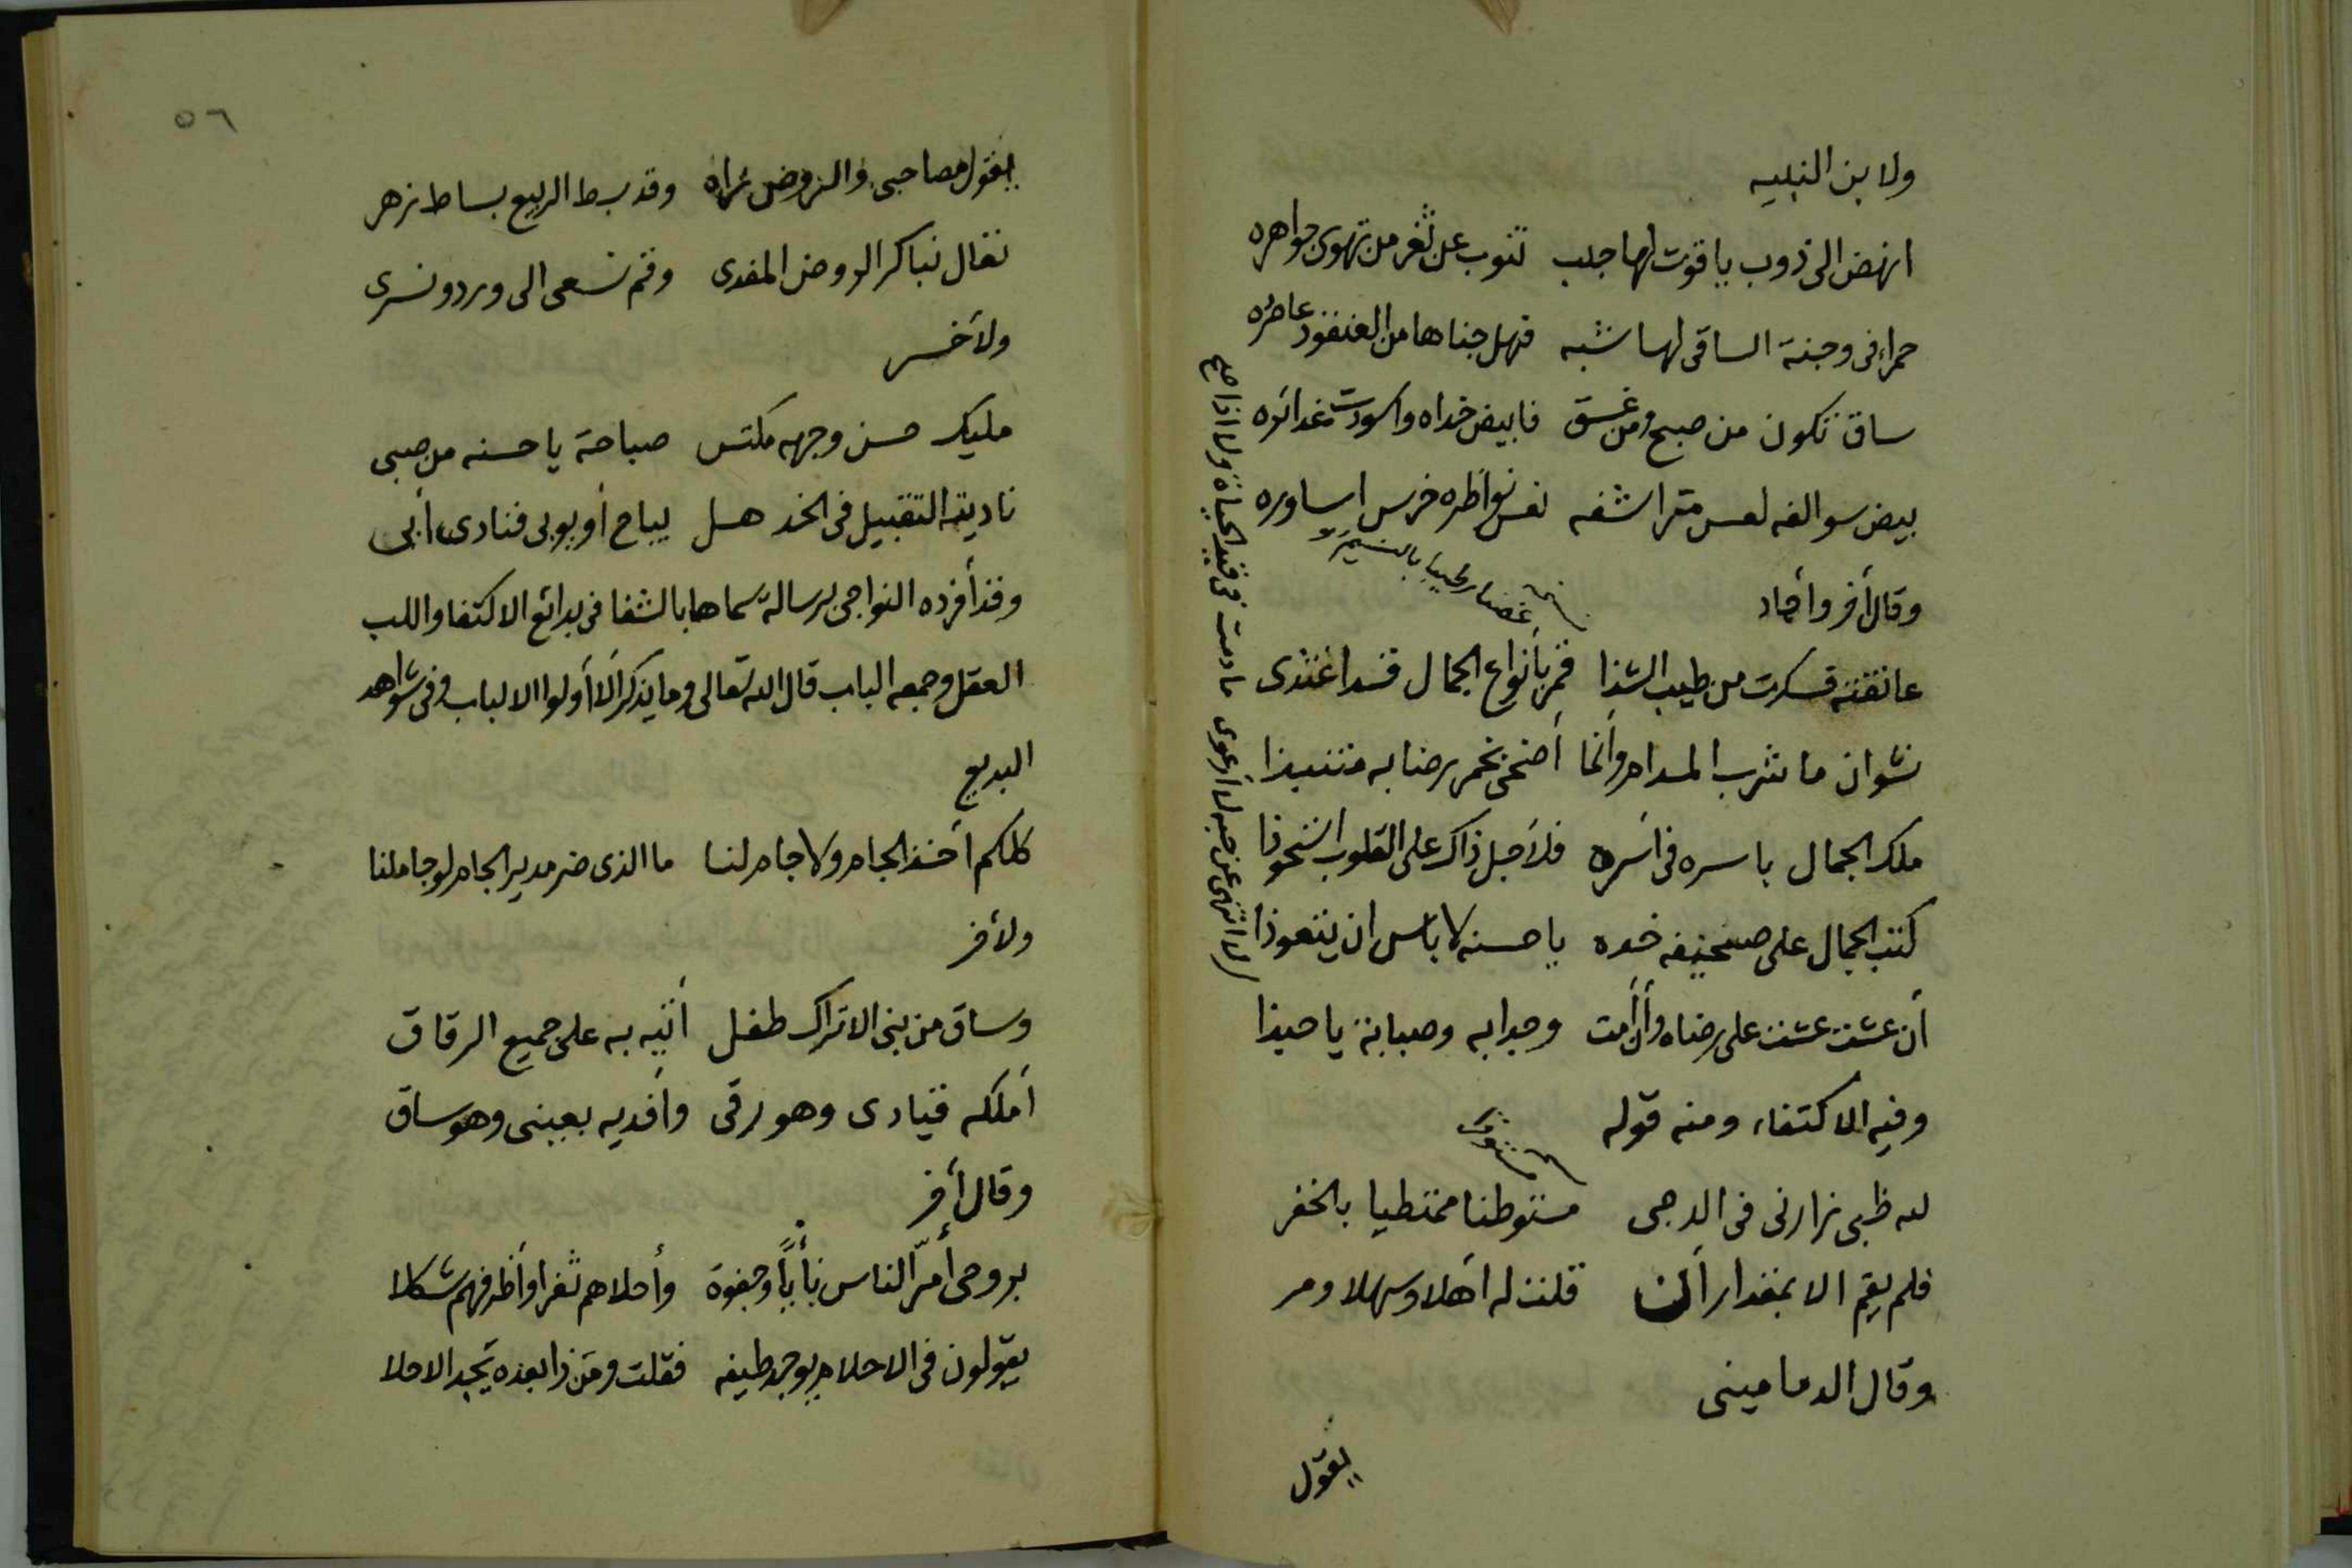 ولابن النبيه
انهض الى ذوب ياقوت لها حبب تنوب عن ثغر من تهوى جواهره
حمراء فى وجنة الساقى لها شبه فهل جناها من العنقود عاصره
ساق تكون من صبح ومن غسق فابيض خداه واسودت غدائره
بيض سوالفه لعس مراشفه نعس نواظره خرس اساوره
وقال أخر وأجاد
غصنا رطيبا بالنسيم
عانقته فسكرت من طيب الشذا قمر بأنواع الجمال قد اغتذى
نشوان ما شرب المدام وانما أضحى بخمر رضابه متنبذا
ملك الجمال باسره فى اسره فلأجل ذاك على القلوب استحوذا
كتب الجمال على صحيفه خده يا حسنه لا باس ان يتعوذا
أن عشت عشت على رضاه وأن أمت وجدا به وصبابة يا حبذا
وفيه الاكتفاء ومنه قوله
لله ظبى زارنى فى الدجى مستوطنا ممتطيا بالخفر
فلم يقم الا بمقدار أن قلت له اهلا وسهلا ومر
وقال الدمامينى
يقول
لا انتهى عن حبه لا أرعوى ما دمت فى قيد الحياة ولا اذا صح
٥٦
يقول مصاحبى والروض زاه وقد بسط الربيع بساط زهر
تعال نباكر الروض المفدى وقم نسعى الى ورد ونسرى
ولأخر
مليك حسن وجهه مكتس صباحة يا حسنه من صبى
ناديته التقبيل فى الخد هل يباح أو يوبى فنادى أبى
وقد أفرده النواجى برسالة سماها بالشفا فى بدائع الاكتفا واللب
العقل وجمعه الباب قال الله تعالى وما يذكر الا أولوا الالباب وفى شواهد
البديع
كلكم أخذ الجام ولا جام لنا ما الذى ضر مدير الجام لو جاملنا
ولأخر
وساق من بنى الاتراك طفل أتيه به على جميع الرفاق
أملكه قيادى وهو رقى وأفديه بعينى وهو ساق
وقال أخر
بروحى أمرّ الناس نأيًا وجفوة وأحلاهم ثغرا وأظرفهم شكلا
يقولون فى الاحلام يوجد طيفه فقلت ومن ذا بعده يجد الاحلا